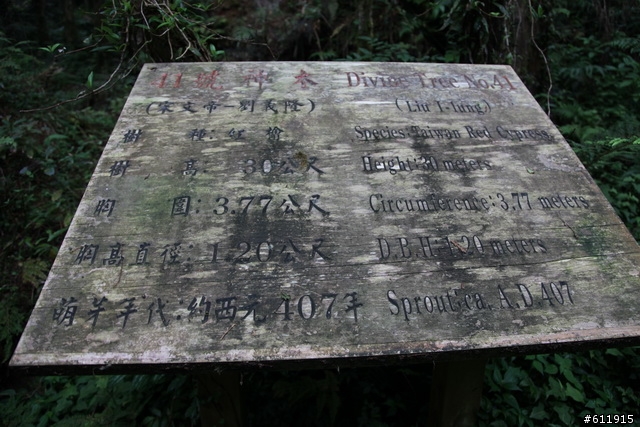 41號神木 Divine Tree No.41
(宋文帝—劉義隆) (Liu I-lung)
樹 種:紅檜 Species:Taiwan Red Cypress
樹 高 30公尺 Height:30 meters
胸 圍:3.77公尺 Circumference:3.77 meters
胸高直徑:1.20公尺 D.B.H:1.20 meters
萌芽年代:約西元407年 Sprout:ca. A.D 407
#611915